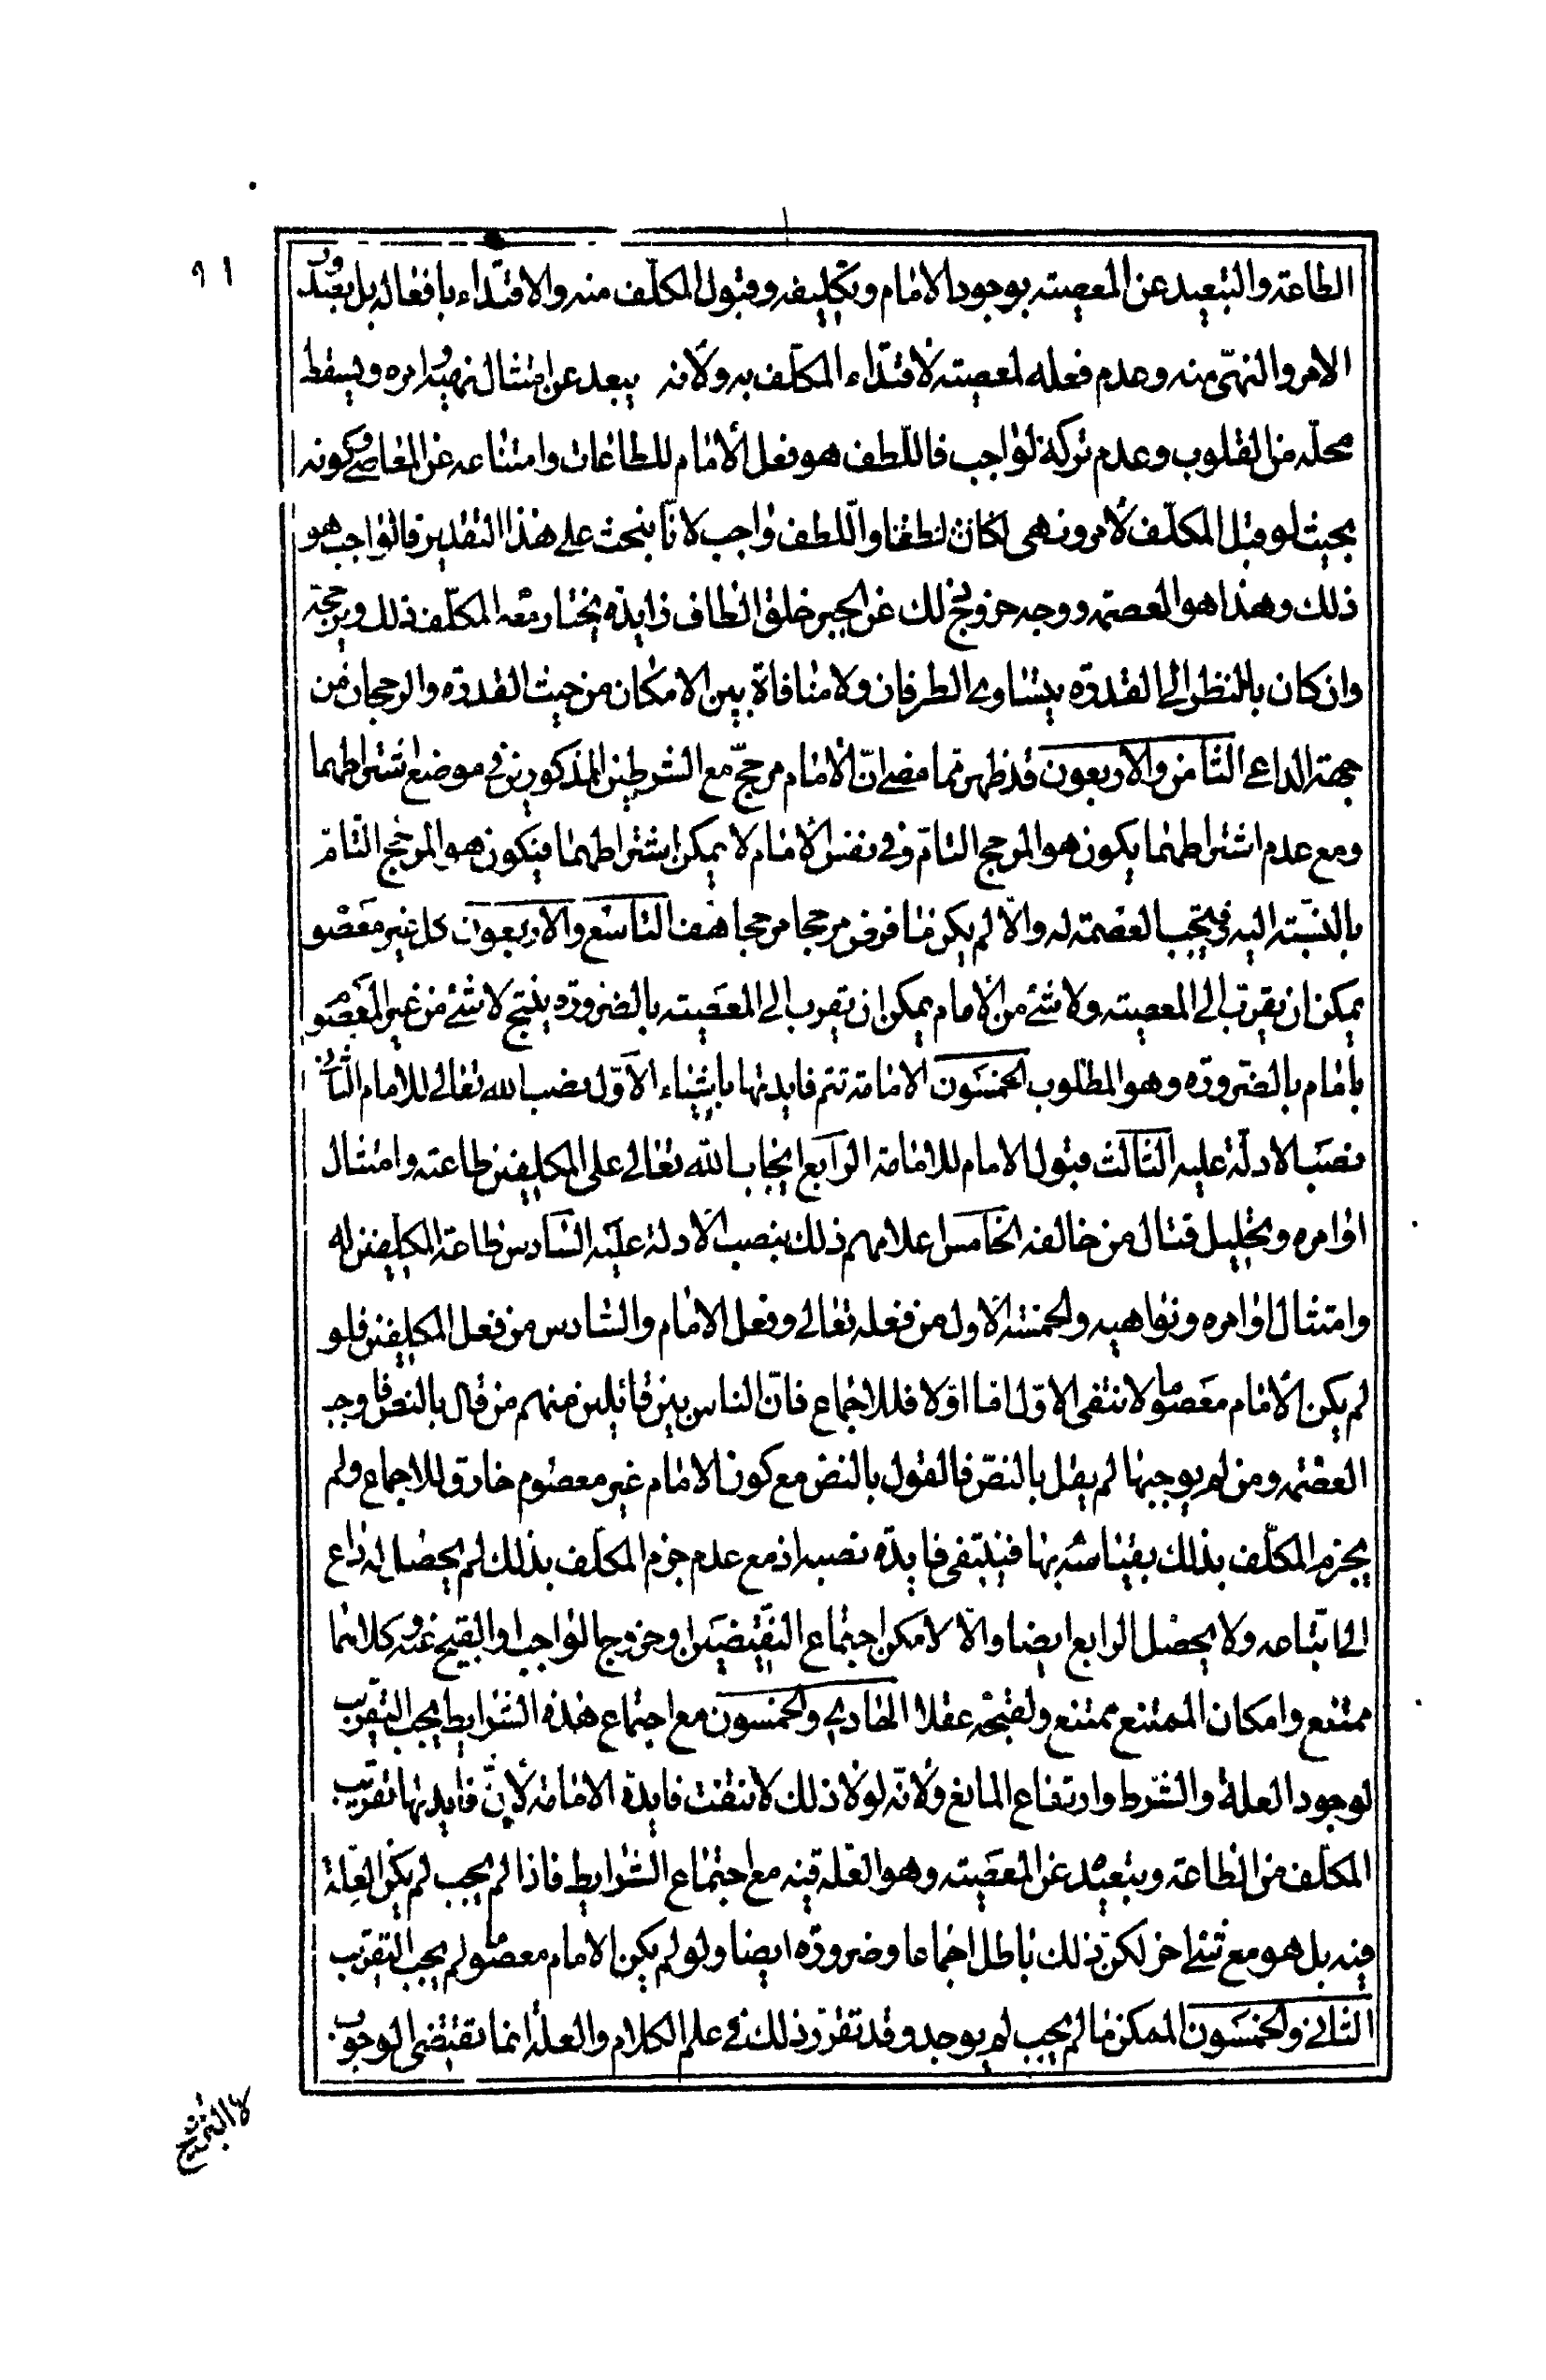 ٩١
الطاعة والتبعيد عن المعصية بوجود الامام وتكليفه وقبول المكلّف منه والاقتداء بافعاله بل بعد ورود
الامر والنهى منه وعدم فعله لمعصية لاقتداء المكلّف به ولانه يبعد عن امتثال نهيه وامره ويسقط
محلّه من القلوب وعدم تركه لواجب فاللّطف هو فعل الامام للطاعات وامتناعه عن المعاصى وكونه
بحيث لو قبل المكلّف لامر ونهى لكان لطفا واللّطف واجب لانّا نبحث على هذا التقدير فالواجب هو
ذلك وهذا هو العصمة ووجه خروج ذلك عن الجبر خلق الطاف زايدة يختار معه المكلّف ذلك ويرجحه
وان كان بالنظر الى القدرة يتساوى الطرفان ولا منافاة بين الامكان من حيث القدرة والرجحان من
جهة الداعى الثامن والاربعون قد ظهر مما مضى انّ الامام مرجّح مع الشرطين المذكورين فى موضع اشتراطهما
ومع عدم اشتراطهما يكون هو المرجح التامّ وفى نفس الامام لا يمكن اشتراطهما فيكون هو المرجح التّام
بالنسبة اليه فيجب العصمة له والّا لم يكن ما فرض مرجحا مرجحا هف التاسع والاربعون كل غير معصوم
يمكن ان يقرب الى المعصية ولا شئ من الامام يمكن ان يقرب الى المعصية بالضرورة ينتج لا شئ من غير المعصوم
بامام بالضّرورة وهو المطلوب الخمسون الامامة تتم فايدتها باشياء الاوّل نصب الله تعالى للامام الثّانى
نصب الادلّة عليه الثالث قبول الامام للامامة الرابع ايجاب الله تعالى على المكلفين طاعته وامتثال
اوامره وتحليل قتال من خالفه الخامس اعلامهم ذلك بنصب الادلة عليه السادس طاعة المكلفين له
وامتثال اوامره ونواهيه والخمسة الاول من فعله تعالى وفعل الامام والسادس من فعل المكلفين فلو
لم يكن الامام معصوما لانتفى الاول اما اولا فللاجماع فانّ الناس بين قائلين منهم من قال بالنص فاوجب
العصمة ومن لم يوجبها لم يقل بالنصّ فالقول بالنص مع كون الامام غير معصوم خارق للاجماع ولم
يجزم المكلّف بذلك فينتفى فايدة نصبه اذ مع عدم جزم المكلف بذلك لم يحصل له داع
الى اتباعه ولا يحصل الرابع ايضا والّا لامكن اجتماع النقيضين او خروج الواجب او القبيح عنه وكلاهما
ممتنع وامكان الممتنع ممتنع ولقبحه عقلا الحادى والخمسون مع اجتماع هذه الشرايط يجب التقريب
لوجود العلة والشرط وارتفاع المانع ولانّه لولا ذلك لانتفت فايدة الامامة لانّ فايدتها تقريب
المكلّف من الطاعة وتبعيده عن المعصية وهو العلّة فيه مع اجتماع الشرايط فاذا لم يجب لم يكن العلة
فيه بل هو مع شئ اخر لكن ذلك باطل اجماعا وضرورة ايضا ولو لم يكن الامام معصوما لم يجب التقريب
الثانى والخمسون الممكن ما لم يجب لم يوجد وقد تقرّر ذلك فى علم الكلام والعلة انما تقتضى الوجوب